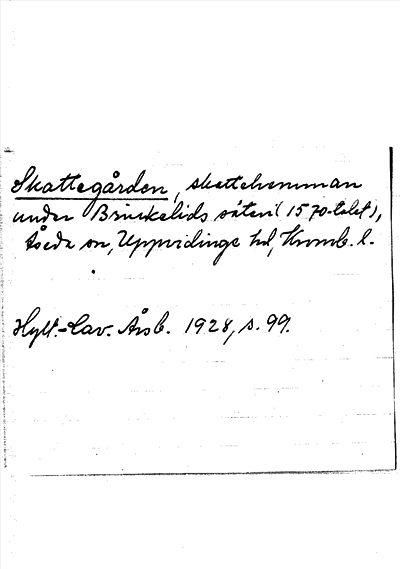 Skattegården, skattehemman
under Brinkelids säteri (1570-talet),
Åseda sn, Uppvidinge hd, Kronob. l.
Hylt.-Cav. Årsb. 1928, s. 99.